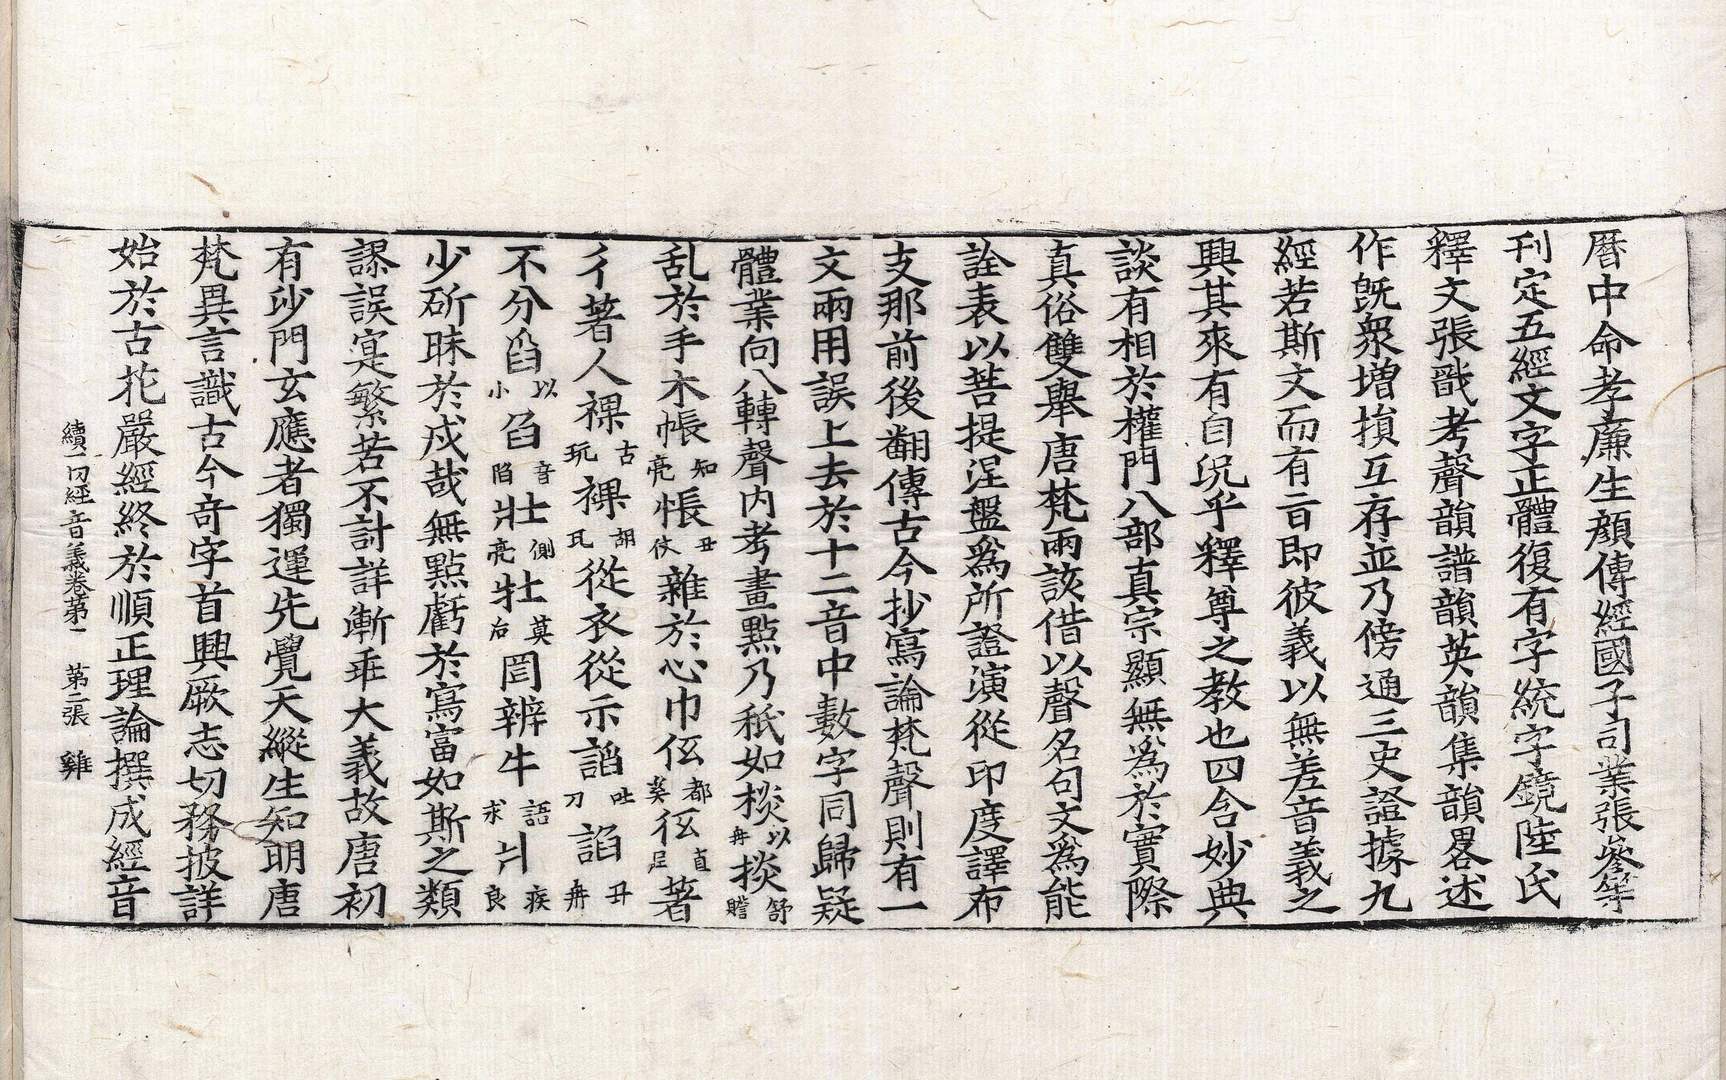 曆中命孝廉生顔傳經國子司業張參等
刊定五經文字正體復有字統字鏡陸氏
釋文張戩考聲韻譜韻英韻集韻畧述
作旣衆增損互存並乃傍通三史證據九
經若斯文而有旨即彼義以無差音義之
興其來有自况乎釋尊之教也四含妙典
談有相於權門八部真宗顯無爲於實際
真俗雙舉唐梵兩該借以聲名句文爲能
詮表以菩提涅盤爲所證演從印度譯布
支那前後翻傳古今抄寫論梵聲則有一
文兩用誤上去於十二音中數字同歸疑
體業向八轉聲內考畫點乃秖如棪以冉掞舒贍
乱於手木帳知亮悵丑仗雜於心巾伭都奚彽直尼著
彳著人裸古玩祼胡瓦從衣從示謟吐刀諂丑冉
不分舀以小臽音陷壯側亮牡莫后罔辨牛語求爿疾良
少斫昧於戍哉無點虧於寫富如斯之類
謬誤寔繁若不討詳漸乖大義故唐初
有沙門玄應者獨運先覺天縱生知明唐
梵異言識古今竒字首興厥志切務披詳
始於古花嚴經終於順正理論撰成經音
續一切經音義卷第一　第二張　雞